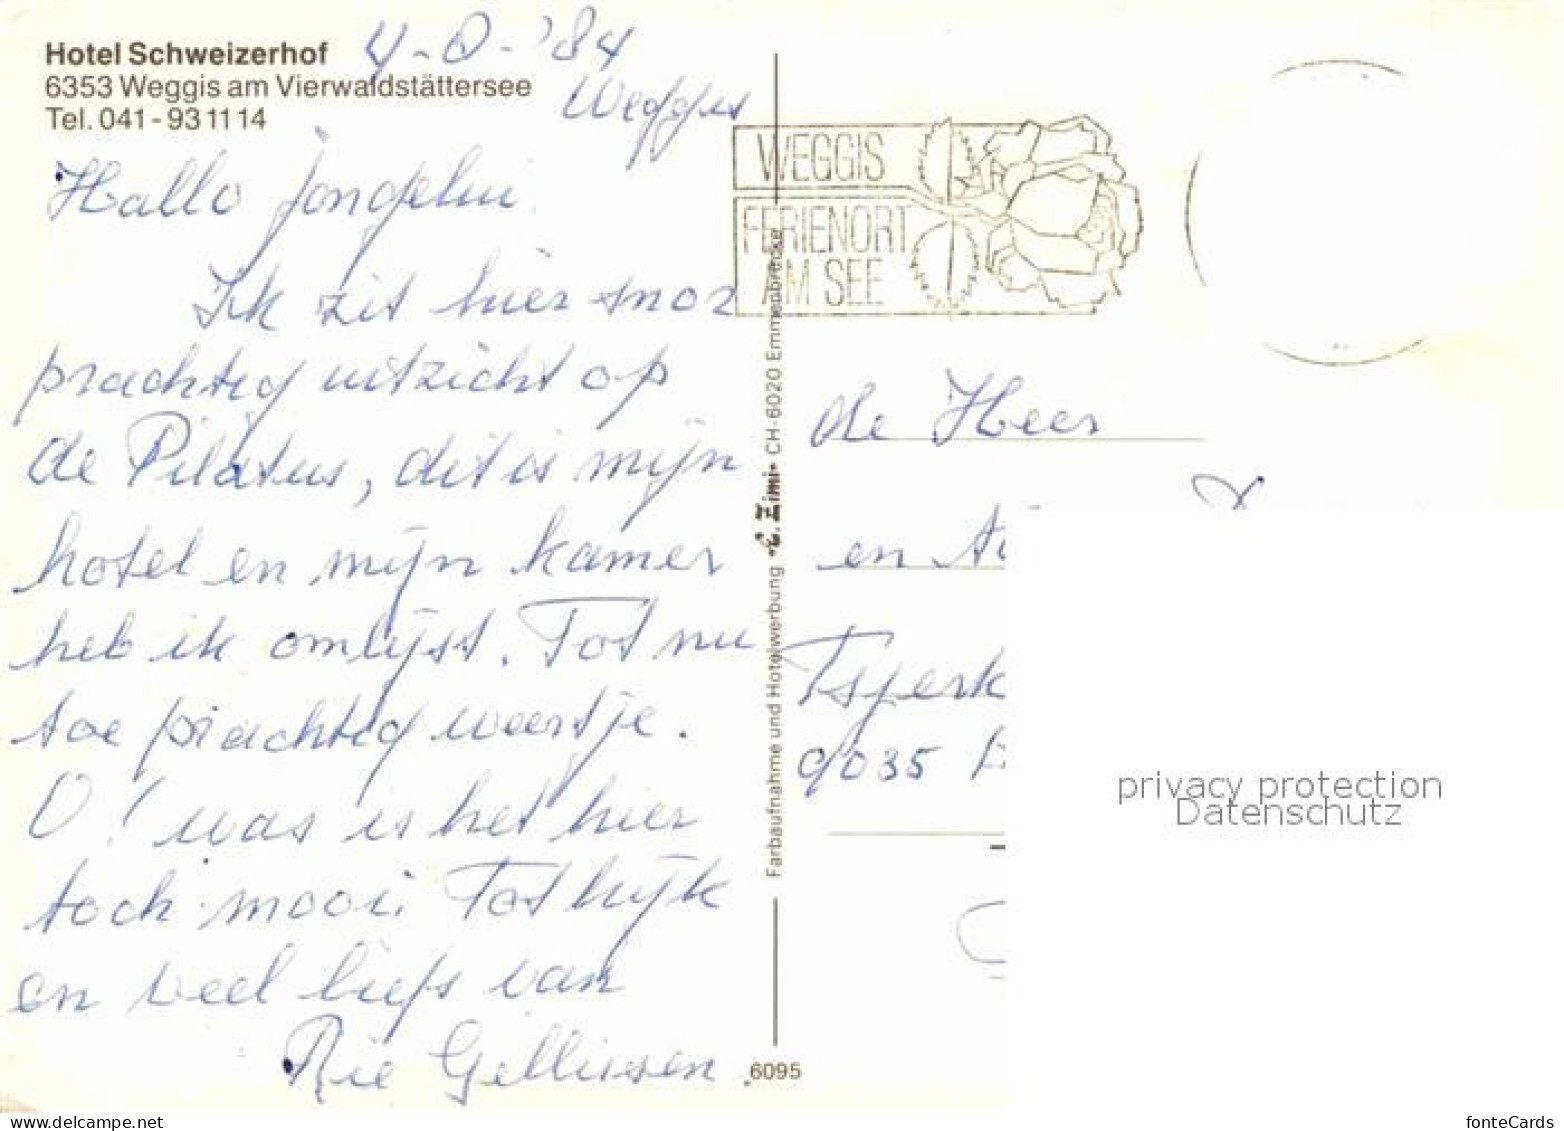 Hotel Schweizerhof
6353 Weggis am Vierwaldstättersee
Tel. 041-93 11 14
'84
Weggis
Hallo jongelui
Ik zit hier met
prachtig uitzicht op
de Pilatus, dit is mijn
hotel en mijn kamer
heb ik omlijst. Tot nu
toe prachtig weertje.
O! was is het hier
toch mooi. Tot kijk
en veel liefs van
Rie Gellissen
WEGGIS
FERIENORT
AM SEE
Farbaufnahme und Hotelwerbung E. Zimi CH-6020 Emmenbrücke
6095
de Heer
en
Tsjerk
9035
privacy protection
Datenschutz
fonteCards
delcampe.net